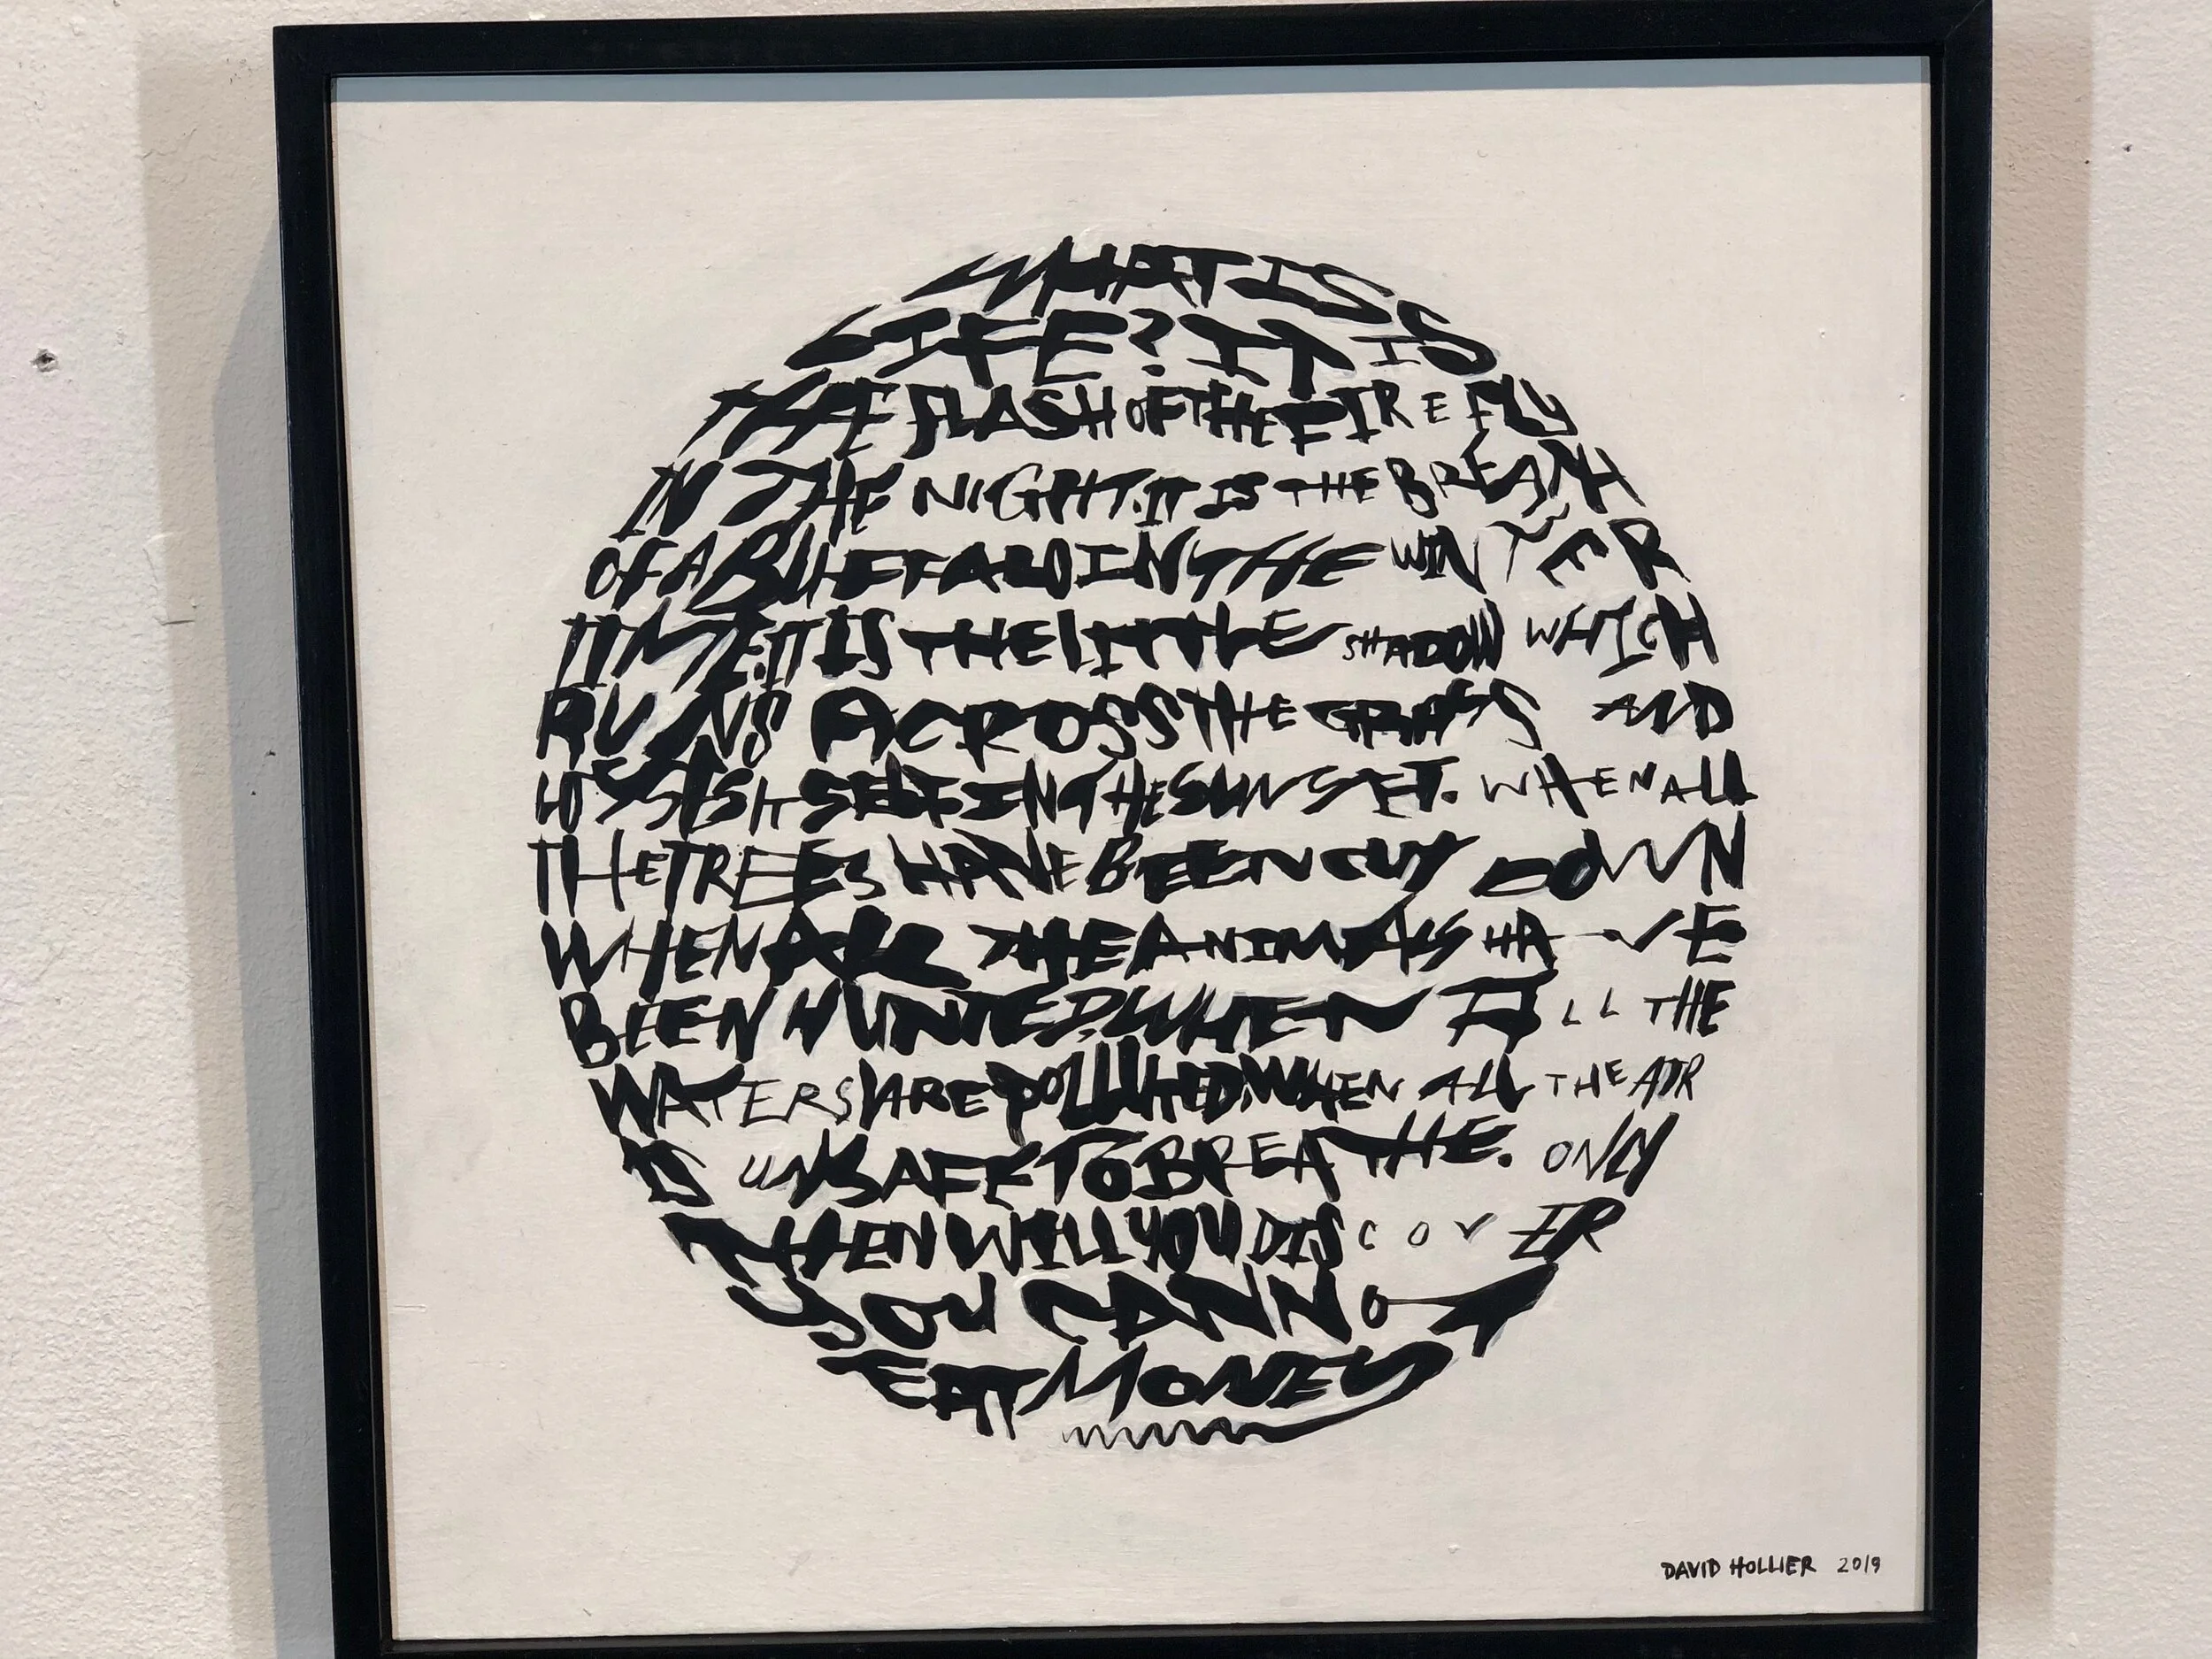 WHAT IS
LIFE? IT IS
THE FLASH OF THE FIREFLY
IN THE NIGHT. IT IS THE BREATH
OF A BUFFALO IN THE WINTER
TIME. IT IS THE LITTLE SHADOW WHICH
RUNS ACROSS THE GRASS AND
LOSES ITSELF IN THE SUNSET. WHEN ALL
THE TREES HAVE BEEN CUT DOWN
WHEN ALL THE ANIMALS HAVE
BEEN HUNTED, WHEN ALL THE
WATERS ARE POLLUTED, WHEN ALL THE AIR
IS UNSAFE TO BREATHE. ONLY
THEN WILL YOU DISCOVER
YOU CANNOT
EAT MONEY
DAVID HOLLIER 2019